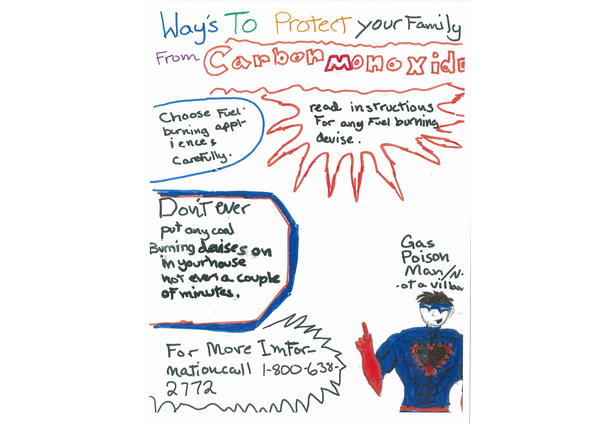 Way's To Protect your Family
From Carbon Monoxide
Choose Fuel-
burning appl-
iences
Carefully.
read instructions
For any Fuel burning
devise.
Don't ever
put any coal
Burning devises on
in your house
not even a couple
of minutes.
Gas
Poison
Man/N-
ot a villan
For More Imfor-
mation call 1-800-638-
2772